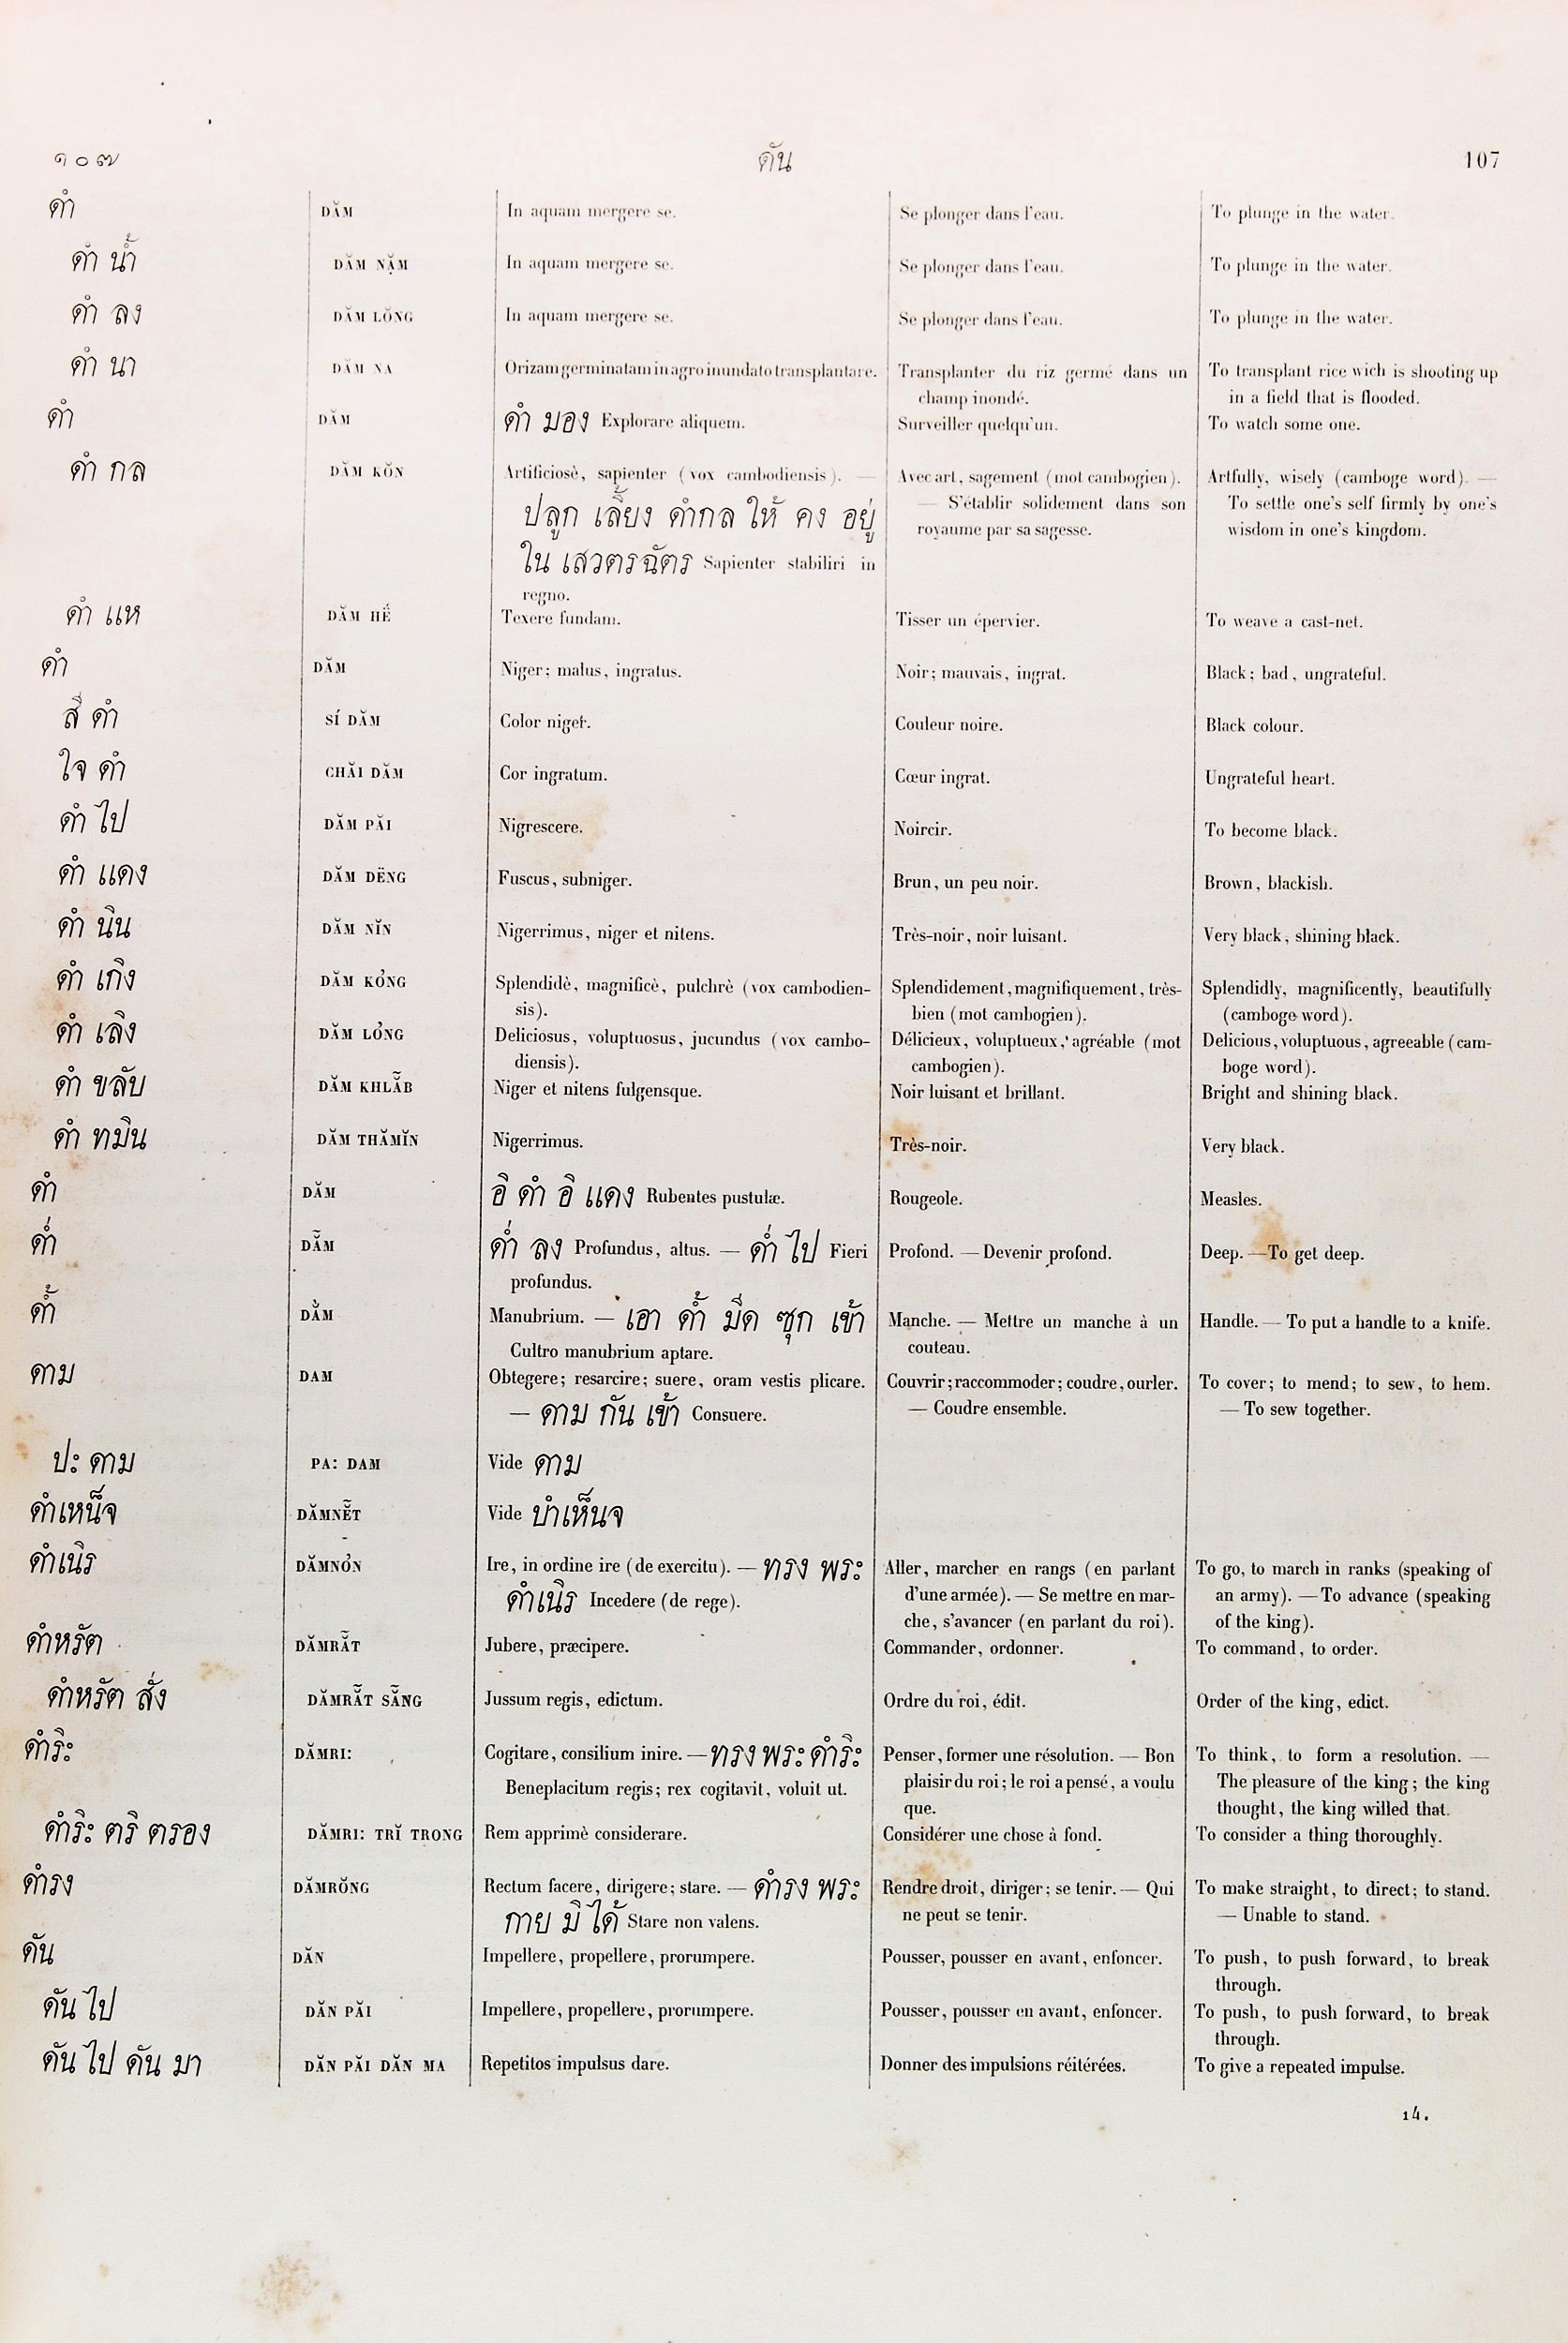 ๑๐๗ ดัน 107
ดำ DĂM In aquam mergere se. Se plonger dans l'eau. To plunge in the water.
ดำ น้ำ DĂM NẶM In aquam mergere se. Se plonger dans l'eau. To plunge in the water.
ดำ ลง DĂM LŎNG In aquam mergere se. Se plonger dans l'eau. To plunge in the water.
ดำ นา DĂM NA Orizam germinatam in agro inundato transplantare. Transplanter du riz germé dans un To transplant rice wich is shooting up
champ inondé. in a field that is flooded.
ดำ DĂM ดำ มอง Explorare aliquem. Surveiller quelqu'un. To watch some one.
ดำ กล DĂM KŎN Artificiosè, sapienter (vox cambodiensis). — Avec art, sagement (mot cambogien). Artfully, wisely (camboge word). —
ปลูก เลี้ยง ดำกล ให้ คง อยู่ — S'établir solidement dans son To settle one's self firmly by one's
royaume par sa sagesse. wisdom in one's kingdom.
ใน เสวตรฉัตร Sapienter stabiliri in
regno.
ดำ แห DĂM HẾ Texere fundam. Tisser un épervier. To weave a cast-net.
ดำ DĂM Niger; malus, ingratus. Noir; mauvais, ingrat. Black; bad, ungrateful.
สี ดำ SÍ DĂM Color niger. Couleur noire. Black colour.
ใจ ดำ CHĂI DĂM Cor ingratum. Cœur ingrat. Ungrateful heart.
ดำ ไป DĂM PĂI Nigrescere. Noircir. To become black.
ดำ แดง DĂM DËNG Fuscus, subniger. Brun, un peu noir. Brown, blackish.
ดำ นิน DĂM NĬN Nigerrimus, niger et nitens. Très-noir, noir luisant. Very black, shining black.
ดำ เกิง DĂM KỎNG Splendidè, magnificè, pulchrè (vox cambodien- Splendidement, magnifiquement, très- Splendidly, magnificently, beautifully
sis). bien (mot cambogien). (camboge word).
ดำ เลิง DĂM LỎNG Deliciosus, voluptuosus, jucundus (vox cambo- Délicieux, voluptueux, agréable (mot Delicious, voluptuous, agreeable (cam-
diensis). cambogien). boge word).
ดำ ขลับ DĂM KHLẴB Niger et nitens fulgensque. Noir luisant et brillant. Bright and shining black.
ดำ ทมิน DĂM THĂMĬN Nigerrimus. Très-noir. Very black.
ดำ DĂM อิ ดำ อิ แดง Rubentes pustulæ. Rougeole. Measles.
ด่ำ DẴM ด่ำ ลง Profundus, altus. — ด่ำ ไป Fieri Profond. — Devenir profond. Deep. — To get deep.
profundus.
ด้ำ DẰM Manubrium. — เอา ด้ำ มีด ซุก เข้า Manche. — Mettre un manche à un Handle. — To put a handle to a knife.
Cultro manubrium aptare. couteau.
ดาม DAM Obtegere; resarcire; suere, oram vestis plicare. Couvrir; raccommoder; coudre, ourler. To cover; to mend; to sew, to hem.
— ดาม กัน เข้า Consuere. — Coudre ensemble. — To sew together.
ปะ ดาม PA: DAM Vide ดาม
ดำเหน็จ DĂMNẼT Vide บำเห็นจ
ดำเนิร DĂMNỎN Ire, in ordine ire (de exercitu). — ทรง พระ Aller, marcher en rangs (en parlant To go, to march in ranks (speaking of
ดำเนิร Incedere (de rege). d'une armée). — Se mettre en mar- an army). — To advance (speaking
che, s'avancer (en parlant du roi). of the king).
ดำหรัต DĂMRẴT Jubere, præcipere. Commander, ordonner. To command, to order.
ดำหรัต สั่ง DĂMRẴT SẴNG Jussum regis, edictum. Ordre du roi, édit. Order of the king, edict.
ดำริะ DĂMRI: Cogitare, consilium inire. — ทรง พระ ดำริะ Penser, former une résolution. — Bon To think, to form a resolution. —
Beneplacitum regis; rex cogitavit, voluit ut. plaisir du roi; le roi a pensé, a voulu The pleasure of the king; the king
que. thought, the king willed that.
ดำริะ ตริ ตรอง DĂMRI: TRĬ TRONG Rem apprimè considerare. Considérer une chose à fond. To consider a thing thoroughly.
ดำรง DĂMRŎNG Rectum facere, dirigere; stare. — ดำรง พระ Rendre droit, diriger; se tenir. — Qui To make straight, to direct; to stand.
กาย มิ ได้ Stare non valens. ne peut se tenir. — Unable to stand.
ดัน DĂN Impellere, propellere, prorumpere. Pousser, pousser en avant, enfoncer. To push, to push forward, to break
through.
ดัน ไป DĂN PĂI Impellere, propellere, prorumpere. Pousser, pousser en avant, enfoncer. To push, to push forward, to break
through.
ดัน ไป ดัน มา DĂN PĂI DĂN MA Repetitos impulsus dare. Donner des impulsions réitérées. To give a repeated impulse.
14.